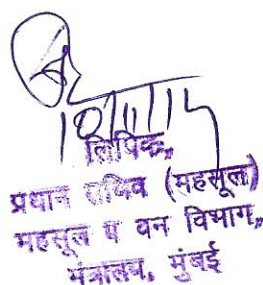 लिपिक,
प्रधान सचिव (महसूल)
महसूल व वन विभाग,
मंत्रालय, मुंबई